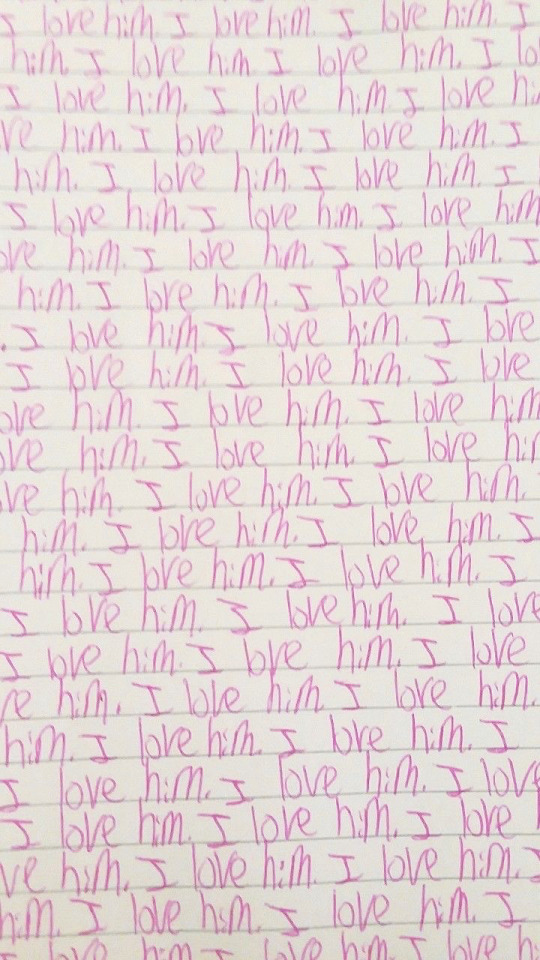 I love him. I love him. I love him. I
him. I love him I love him. I lo
I love him. I love him I love hi
ve him. I love him. I love him. I
him. I love him. I love him. I
I love him. I love him. I love him
ove him. I love him. I love him. I
him. I love him. I love him. I
. I love him I love him. I love
I love him. I love him. I love
ove him. I love him. I love him
ove him. I love him. I love him
ve him. I love him. I love him.
him. I love him. I love him. I
him. I love him. I love him. I
I love him. I love him. I love
I love him. I love him. I love
re him. I love him. I love him.
him. I love him. I love him. I
I love him. I love him. I love
I love him. I love him. I love
ve him. I love him. I love him. I
him. I love him. I love him. I
I love him I love him. I love hi